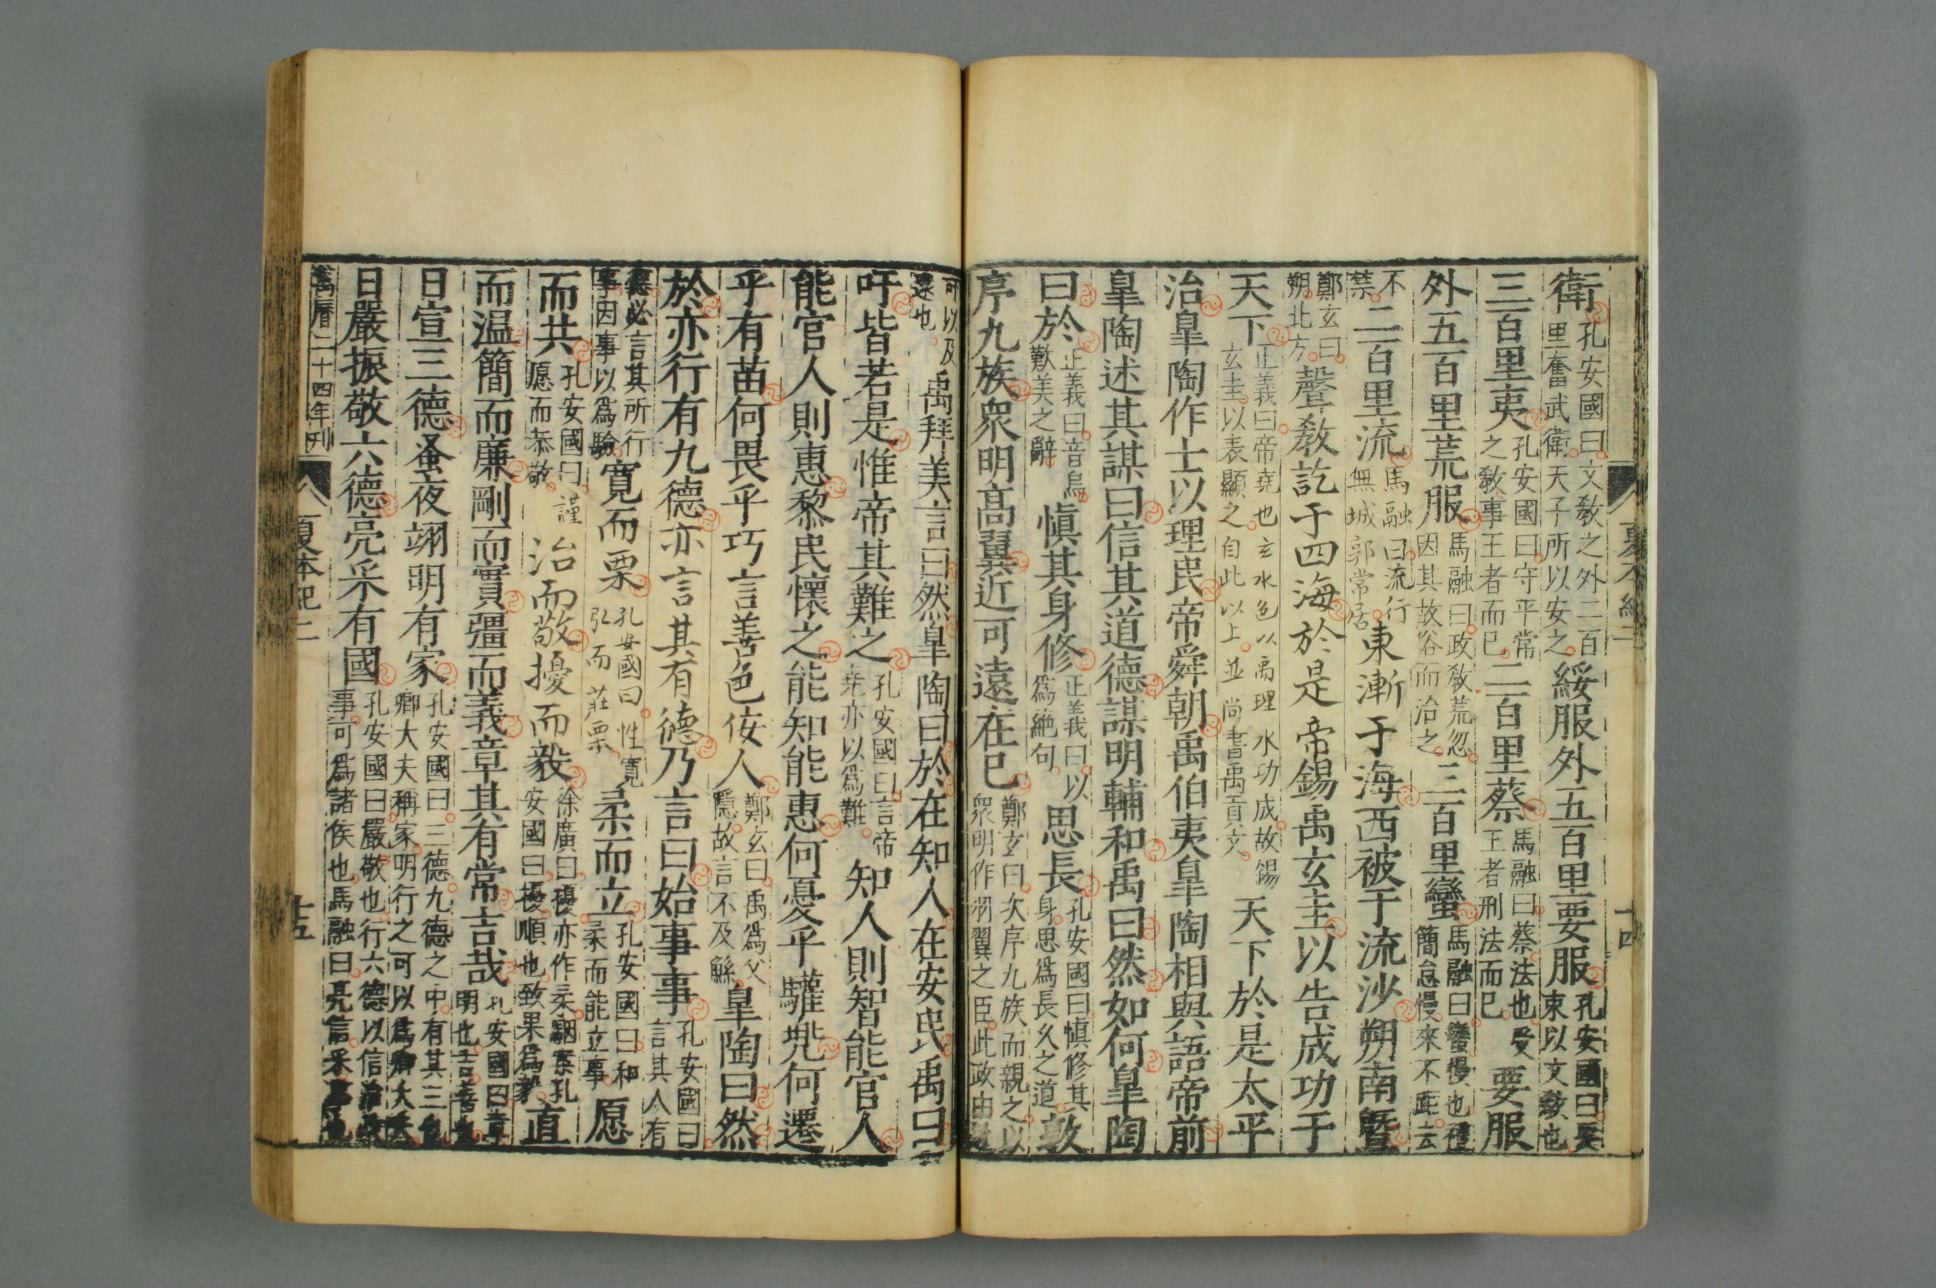 夏本紀二
十四
衛孔安國曰文敎之外二百里奮武衛天子所以安之綏服外五百里要服孔安國曰要束以文敎也
三百里夷孔安國曰守平常之敎事王者而已二百里蔡馬融曰蔡法也受王者刑法而已要服
外五百里荒服馬融曰政敎荒忽因其故俗而治之三百里蠻馬融曰蠻慢也禮簡怠慢來不距去
不禁二百里流馬融曰流行無城郭常居東漸于海西被于流沙朔南曁
鄭玄曰朔北方聲敎訖于四海於是帝錫禹玄圭以告成功于
天下正義曰帝堯也玄水色以禹理水功成故錫玄圭以表顯之自此以上並尚書禹貢文天下於是太平
治皐陶作士以理民帝舜朝禹伯夷皐陶相與語帝前
皐陶述其謀曰信其道德謀明輔和禹曰然如何皐陶
曰於正義曰音烏歎美之辭愼其身修正義曰以爲絶句思長孔安國曰愼修其身思爲長久之道敦
序九族衆明高翼近可遠在已鄭玄曰次序九族而親之以衆明作羽翼之臣此政由
可以及遠也禹拜美言曰然皐陶曰於在知人在安民禹曰
吁皆若是惟帝其難之孔安國曰言帝堯亦以爲難知人則智能官人
能官人則惠黎民懷之能知能惠何憂乎驩兠何遷
乎有苗何畏乎巧言善色佞人鄭玄曰禹爲父隱故言不及鯀皐陶曰然
於亦行有九德亦言其有德乃言曰始事事孔安國曰言其人有
德必言其所行事因事以爲驗寛而栗孔安國曰性寛弘而莊栗柔而立孔安國曰和柔而能立事愿
而共孔安國曰謹愿而恭敬治而敬擾而毅徐廣曰擾亦作柔駰案孔安國曰擾順也致果爲毅直
而温簡而廉剛而實彊而義章其有常吉哉孔安國曰章明也吉善也
日宣三德蚤夜翊明有家孔安國曰三德九德之中有其三也卿大夫稱家明行之可以爲卿大夫
日嚴振敬六德亮采有國孔安國曰嚴敬也行六德以信治政事可爲諸侯也馬融曰亮信采事也
萬曆二十四年刊
夏本紀二
十五